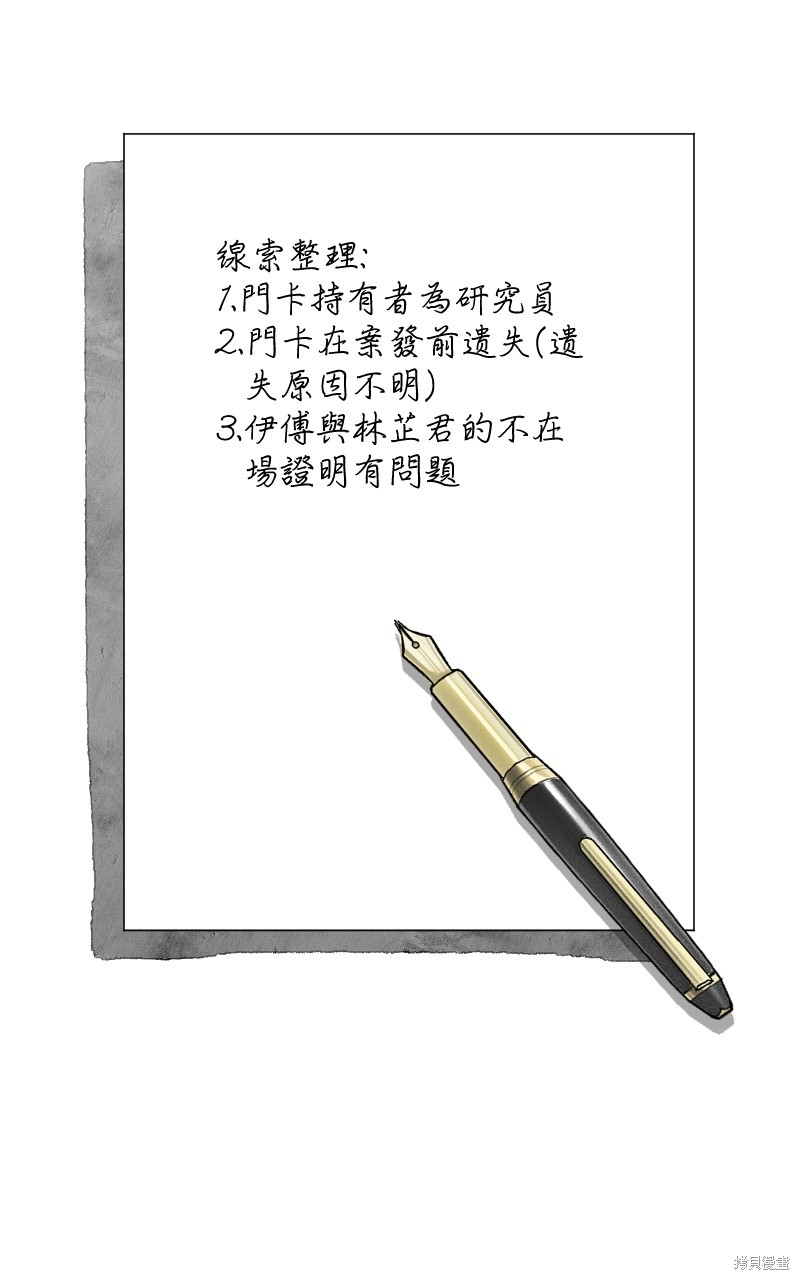 線索整理:
1.門卡持有者為研究員
2.門卡在案發前遺失(遺
失原因不明)
3.伊傅與林芷君的不在
場證明有問題
拷貝漫畫